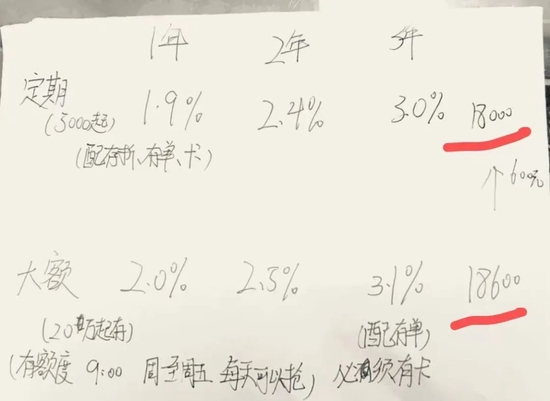 1年 2年 3年
定期 1.9% 2.4% 3.0% 18000
(5000起)
(配存折、存单、卡)
↑600元
大额 2.0% 2.5% 3.1% 18600
(20万起存) (配存单)
(有额度 9:00 周一至周五 每天可以抢) 必须有卡